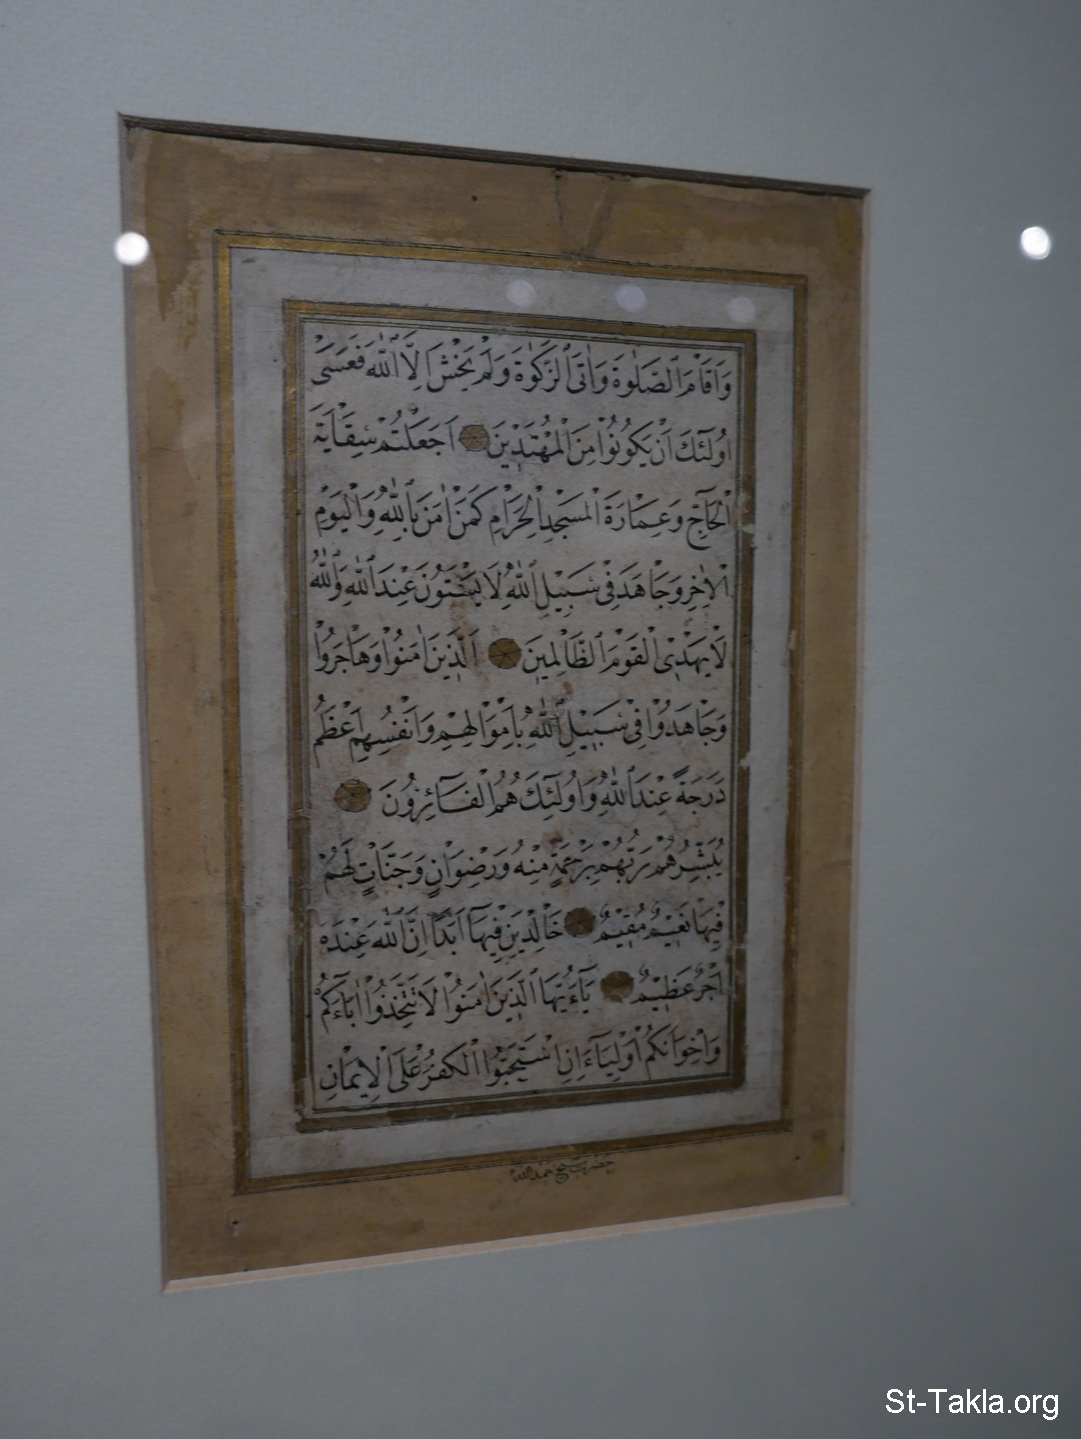 وَاَقَامَ الصَّلٰوةَ وَاٰتَى الزَّكٰوةَ وَلَمْ يَخْشَ اِلَّا اللّٰهَ فَعَسٰٓى
اُولٰٓئِكَ اَنْ يَكُونُوا مِنَ الْمُهْتَدٖينَ اَجَعَلْتُمْ سِقَايَةَ
الْحَٓاجِّ وَعِمَارَةَ الْمَسْجِدِ الْحَرَامِ كَمَنْ اٰمَنَ بِاللّٰهِ وَالْيَوْمِ
الْاٰخِرِ وَجَاهَدَ فٖى سَبٖيلِ اللّٰهِ لَا يَسْتَوُنَ عِنْدَ اللّٰهِ وَاللّٰهُ
لَا يَهْدِى الْقَوْمَ الظَّالِمٖينَ اَلَّذٖينَ اٰمَنُوا وَهَاجَرُوا
وَجَاهَدُوا فٖى سَبٖيلِ اللّٰهِ بِاَمْوَالِهِمْ وَاَنْفُسِهِمْ اَعْظَمُ
دَرَجَةً عِنْدَ اللّٰهِ وَاُولٰٓئِكَ هُمُ الْفَٓائِزُونَ
يُبَشِّرُهُمْ رَبُّهُمْ بِرَحْمَةٍ مِنْهُ وَرِضْوَانٍ وَجَنَّاتٍ لَهُمْ
فٖيهَا نَعٖيمٌ مُقٖيمٌ خَالِدٖينَ فٖيهَٓا اَبَدًا اِنَّ اللّٰهَ عِنْدَهُ
اَجْرٌ عَظٖيمٌ يَٓاءَيُّهَا الَّذٖينَ اٰمَنُوا لَا تَتَّخِذُٓوا اٰبَٓاءَكُمْ
وَاِخْوَانَكُمْ اَوْلِيَٓاءَ اِنِ اسْتَحَبُّوا الْكُفْرَ عَلَى الْاٖيمَانِ
حضرت شيخ حمد الله
St-Takla.org